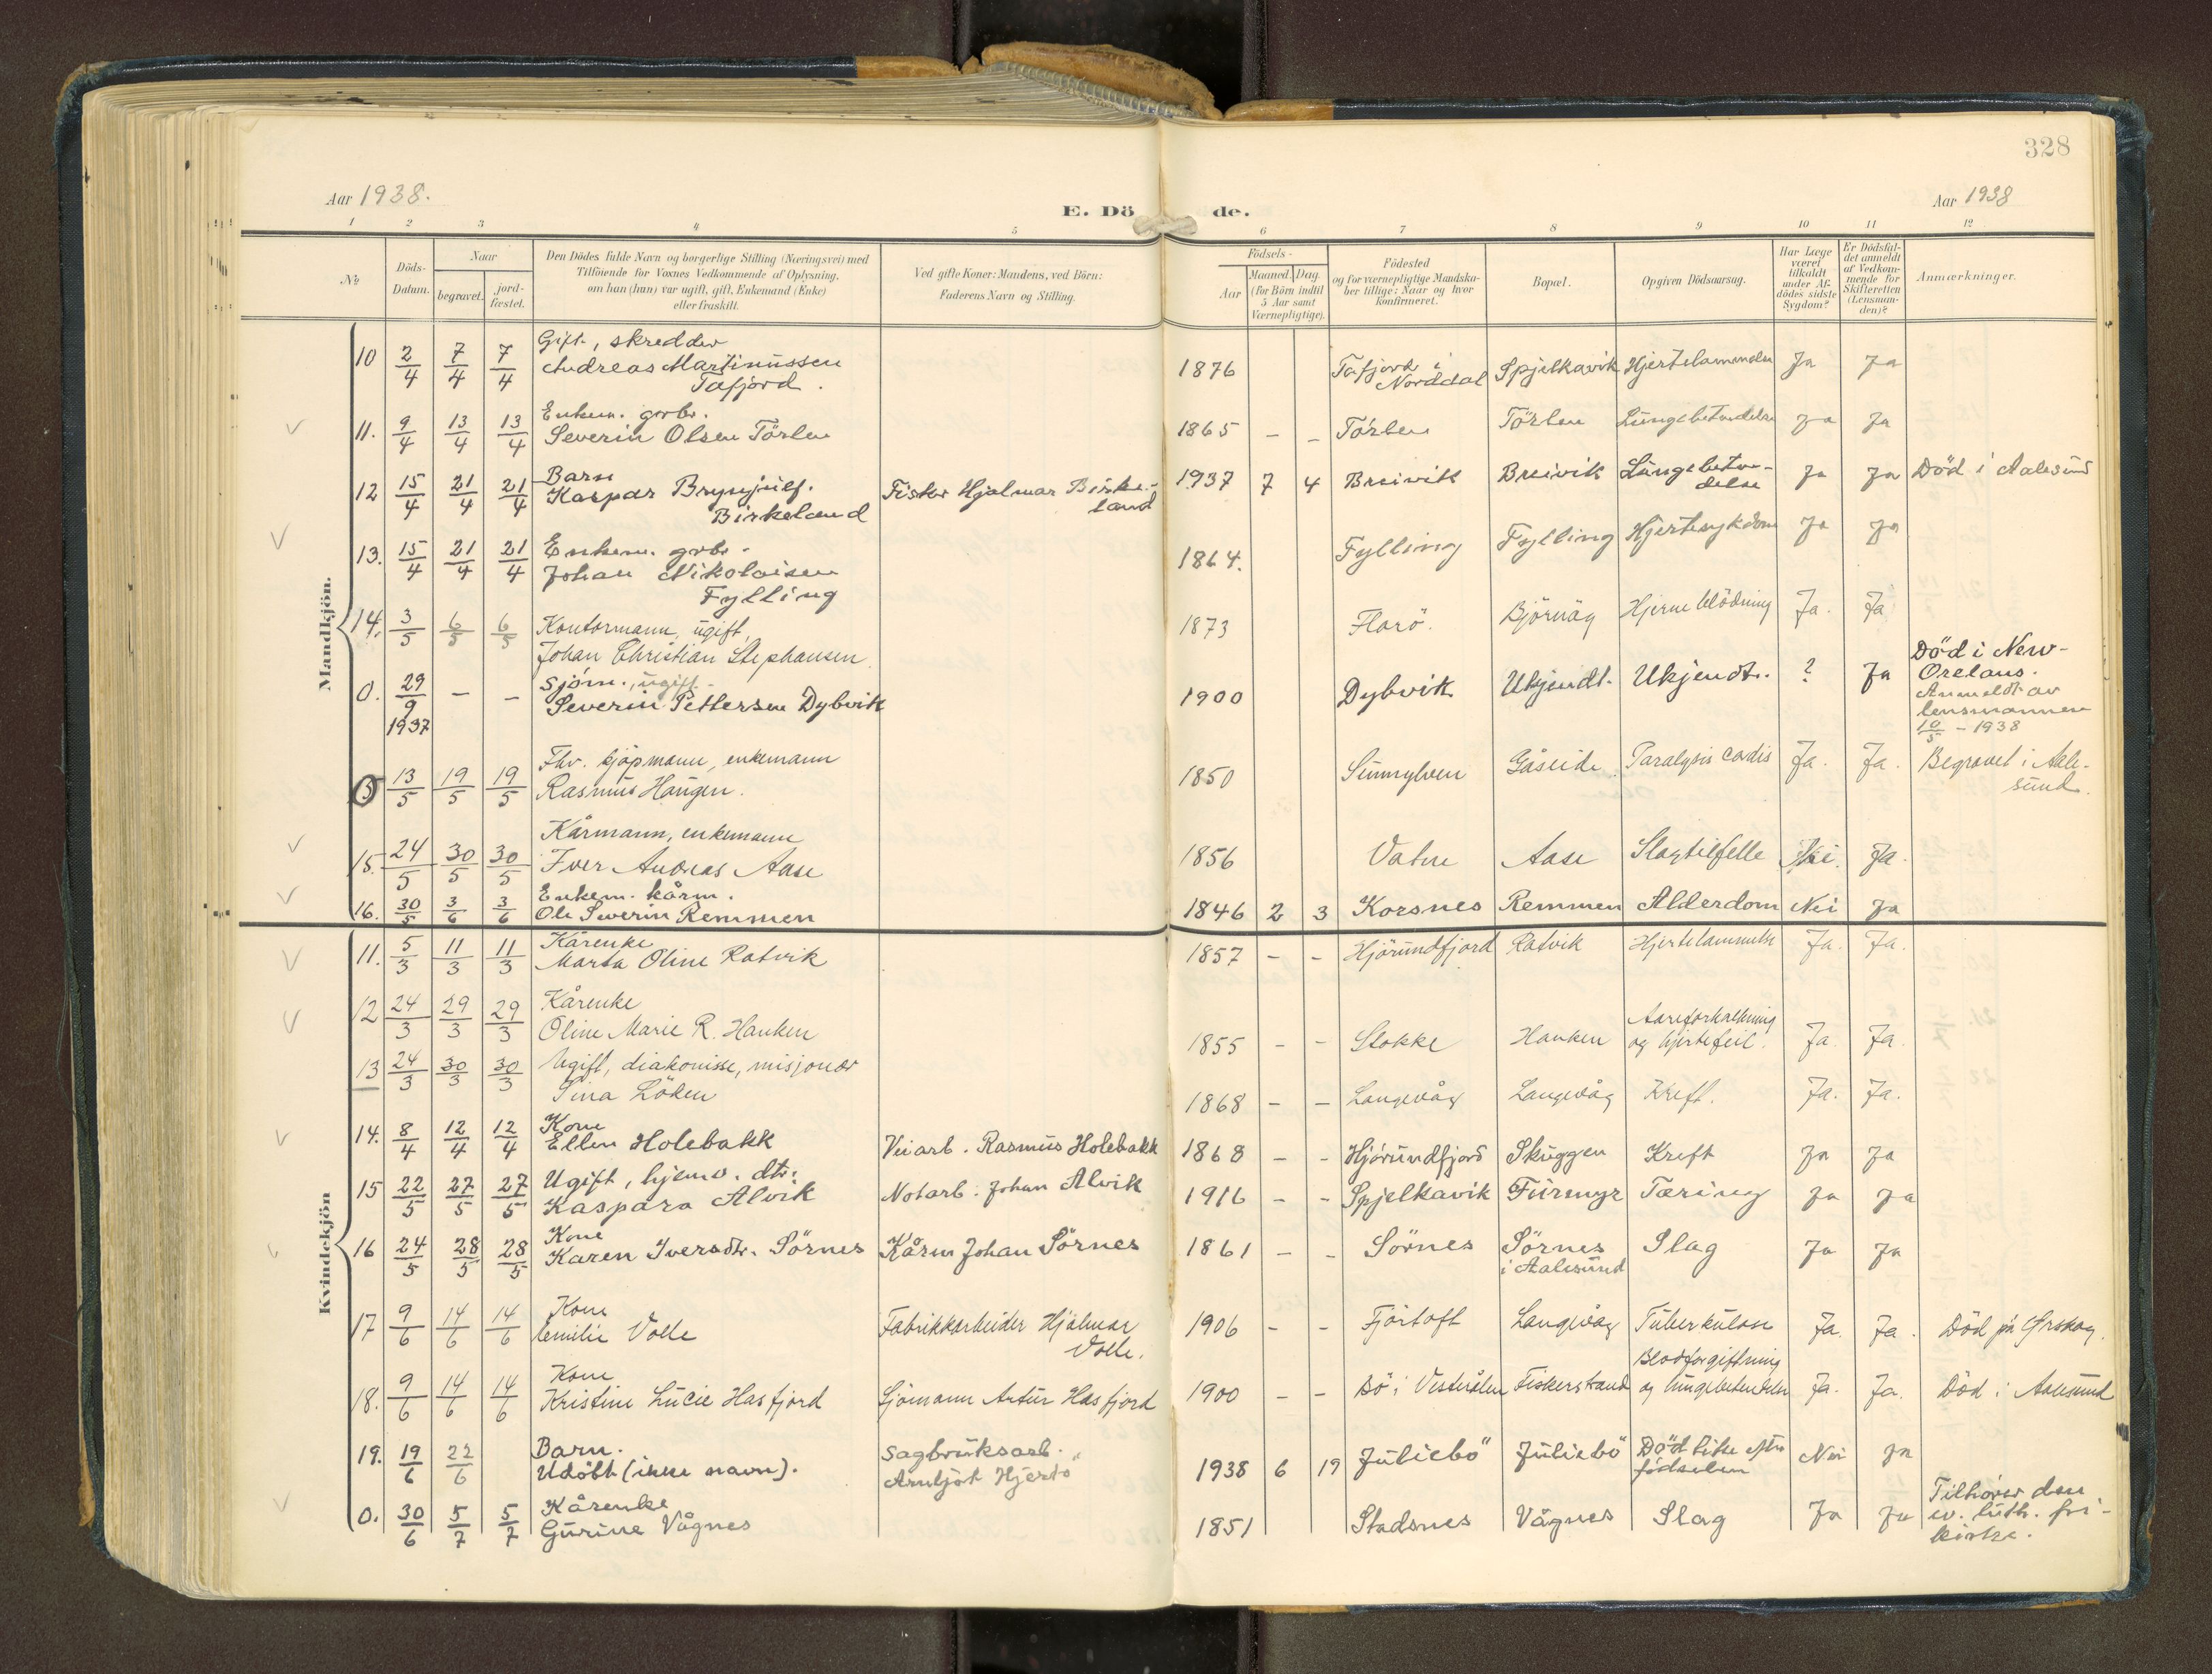 328
Aar 1938.
E. Döde.
Aar 1938
1 2 3 4 5 6 7 8 9 10 11 12
No
Döds-Datum.
Naar
begravet.
jord-fæstet.
Den Dödes fulde Navn og borgerlige Stilling (Næringsvei) med
Tilföiende for Voxnes Vedkommende af Oplysning,
om han (hun) var ugift, gift, Enkemand (Enke)
eller fraskilt.
Ved gifte Koner: Mandens, ved Börn:
Faderens Navn og Stilling.
Födsels-
Aar
Maaned. Dag.
(for Börn indtil
5 Aar samt
Værnepligtige).
Födested
og for værnepligtige Mandska-
ber tillige: Naar og hvor
konfirmeret.
Bopæl.
Opgiven Dödsaarsag.
Har Læge
været
tilkaldt
under Af-
dödes sidste
Sygdom?
Er Dödsfal-
det anmeldt
af Vedkom-
mende for
Skifteretten
(Lensman-
den)?
Anmærkninger.
Mandkjön.
10 2/4 7/4 7/4 Gift, skredder
Andreas Martinussen
Tafjord.
1876 Tafjord i
Norddal Spjelkavik Hjertelammelse Ja Ja
11. 9/4 13/4 13/4 Enkem. grbr.
Severin Olsen Törlen
1865 - - Törlen Törlen Lungebetendelse Ja Ja
12 15/4 21/4 21/4 Barn
Kaspar Brynjulf.
Birkeland
Fisker Hjalmar Birke-
land
1937 7 4 Breivik Breivik Lungebeten-
delse Ja Ja Död i Aalesund
13. 15/4 21/4 21/4 Enkem. grbr.
Johan Nikolaisen
Fylling
1864. Fylling Fylling Hjertesykdom Ja Ja
14. 3/5 6/5 6/5 Kontormann, ugift,
Johan Christian Stephansen.
1873 Florö. Björnåg Hjerneblödning Ja. Ja
0. 29/9 1937 - - Sjöm., ugift.
Severin Pettersen Dybvik
1900 Dybvik Ukjendt. Ukjendt. ? Ja Död i New-
Orelans.
Anmeldt av
lensmannen
10/5 - 1938
13/5 19/5 19/5 Fhv. kjöpmann, enkemann
Rasmus Haugen.
1850 Sunnylven Gåseide Paralysis cordis Ja. Ja. Begravet i Aale-
sund.
15. 24/5 30/5 30/5 Kårmann, enkemann
Iver Andreas Aase
1856 Vatne Aase Slagtilfelle Nei. Ja.
16. 30/5 3/6 3/6 Enkem. kårm.
Ole Severin Remmen
1846 2 3 Korsnes Remmen Alderdom Nei Ja
Kvindekjön
11. 5/3 11/3 11/3 Kårenke
Marta Oline Ratvik
1857 - - Hjörundfjord Ratvik Hjertelammelse Ja. Ja.
12 24/3 29/3 29/3 Kårenke
Oline Marie R. Hanken
1855 - - Stokke Hanken Aareforkalkning
og hjertefeil. Ja. Ja.
13 24/3 30/3 30/3 Ugift, diakonisse, misjonær
Sina Löken
1868 - - Langevåg Langevåg Kreft. Ja. Ja.
14. 8/4 12/4 12/4 Kone
Ellen Holebakk
Veiarb. Rasmus Holebakk
1868 - - Hjörundfjord Skuggen Kreft Ja Ja
15 22/5 27/5 27/5 Ugift, hjemv. dtr.
Kaspara Alvik
Notarb. Johan Alvik
1916 - - Spjelkavik Furmyr Tæring Ja Ja
16 24/5 28/5 28/5 Kone
Karen Iversdtr. Sörnes
Kårm Johan Sörnes
1861 - - Sörnes Sörnes
i Aalesund Slag Ja Ja
17 9/6 14/6 14/6 Kone
Emilie Volle
Fabrikkarbeider Hjalmar
Volle.
1906 - - Fjörtoft Langevåg Tuberkulose Ja. Ja. Död på Ørskog.
18. 9/6 14/6 14/6 Kone
Kristine Lucie Hasfjord
Sjömann Artur Hasfjord
1900 - - Bö i Vesterålen Fiskerstrand Blodforgiftning
og lungebetendelse Ja. Ja. Död i Aalesund
19. 19/6 22/6 Barn.
Udöbt (ikke navn).
Sagbruksarb.
Arnljot Hjertö
1938 6 19 Juliebö Juliebö Död like efter
födselen Nei Ja
0. 30/6 5/7 5/7 Kårenke
Gurine Vågnes
1851 Stadsnes Vågnes Slag Ja Ja Tilhörer den
ev. luth. fri-
kirke.